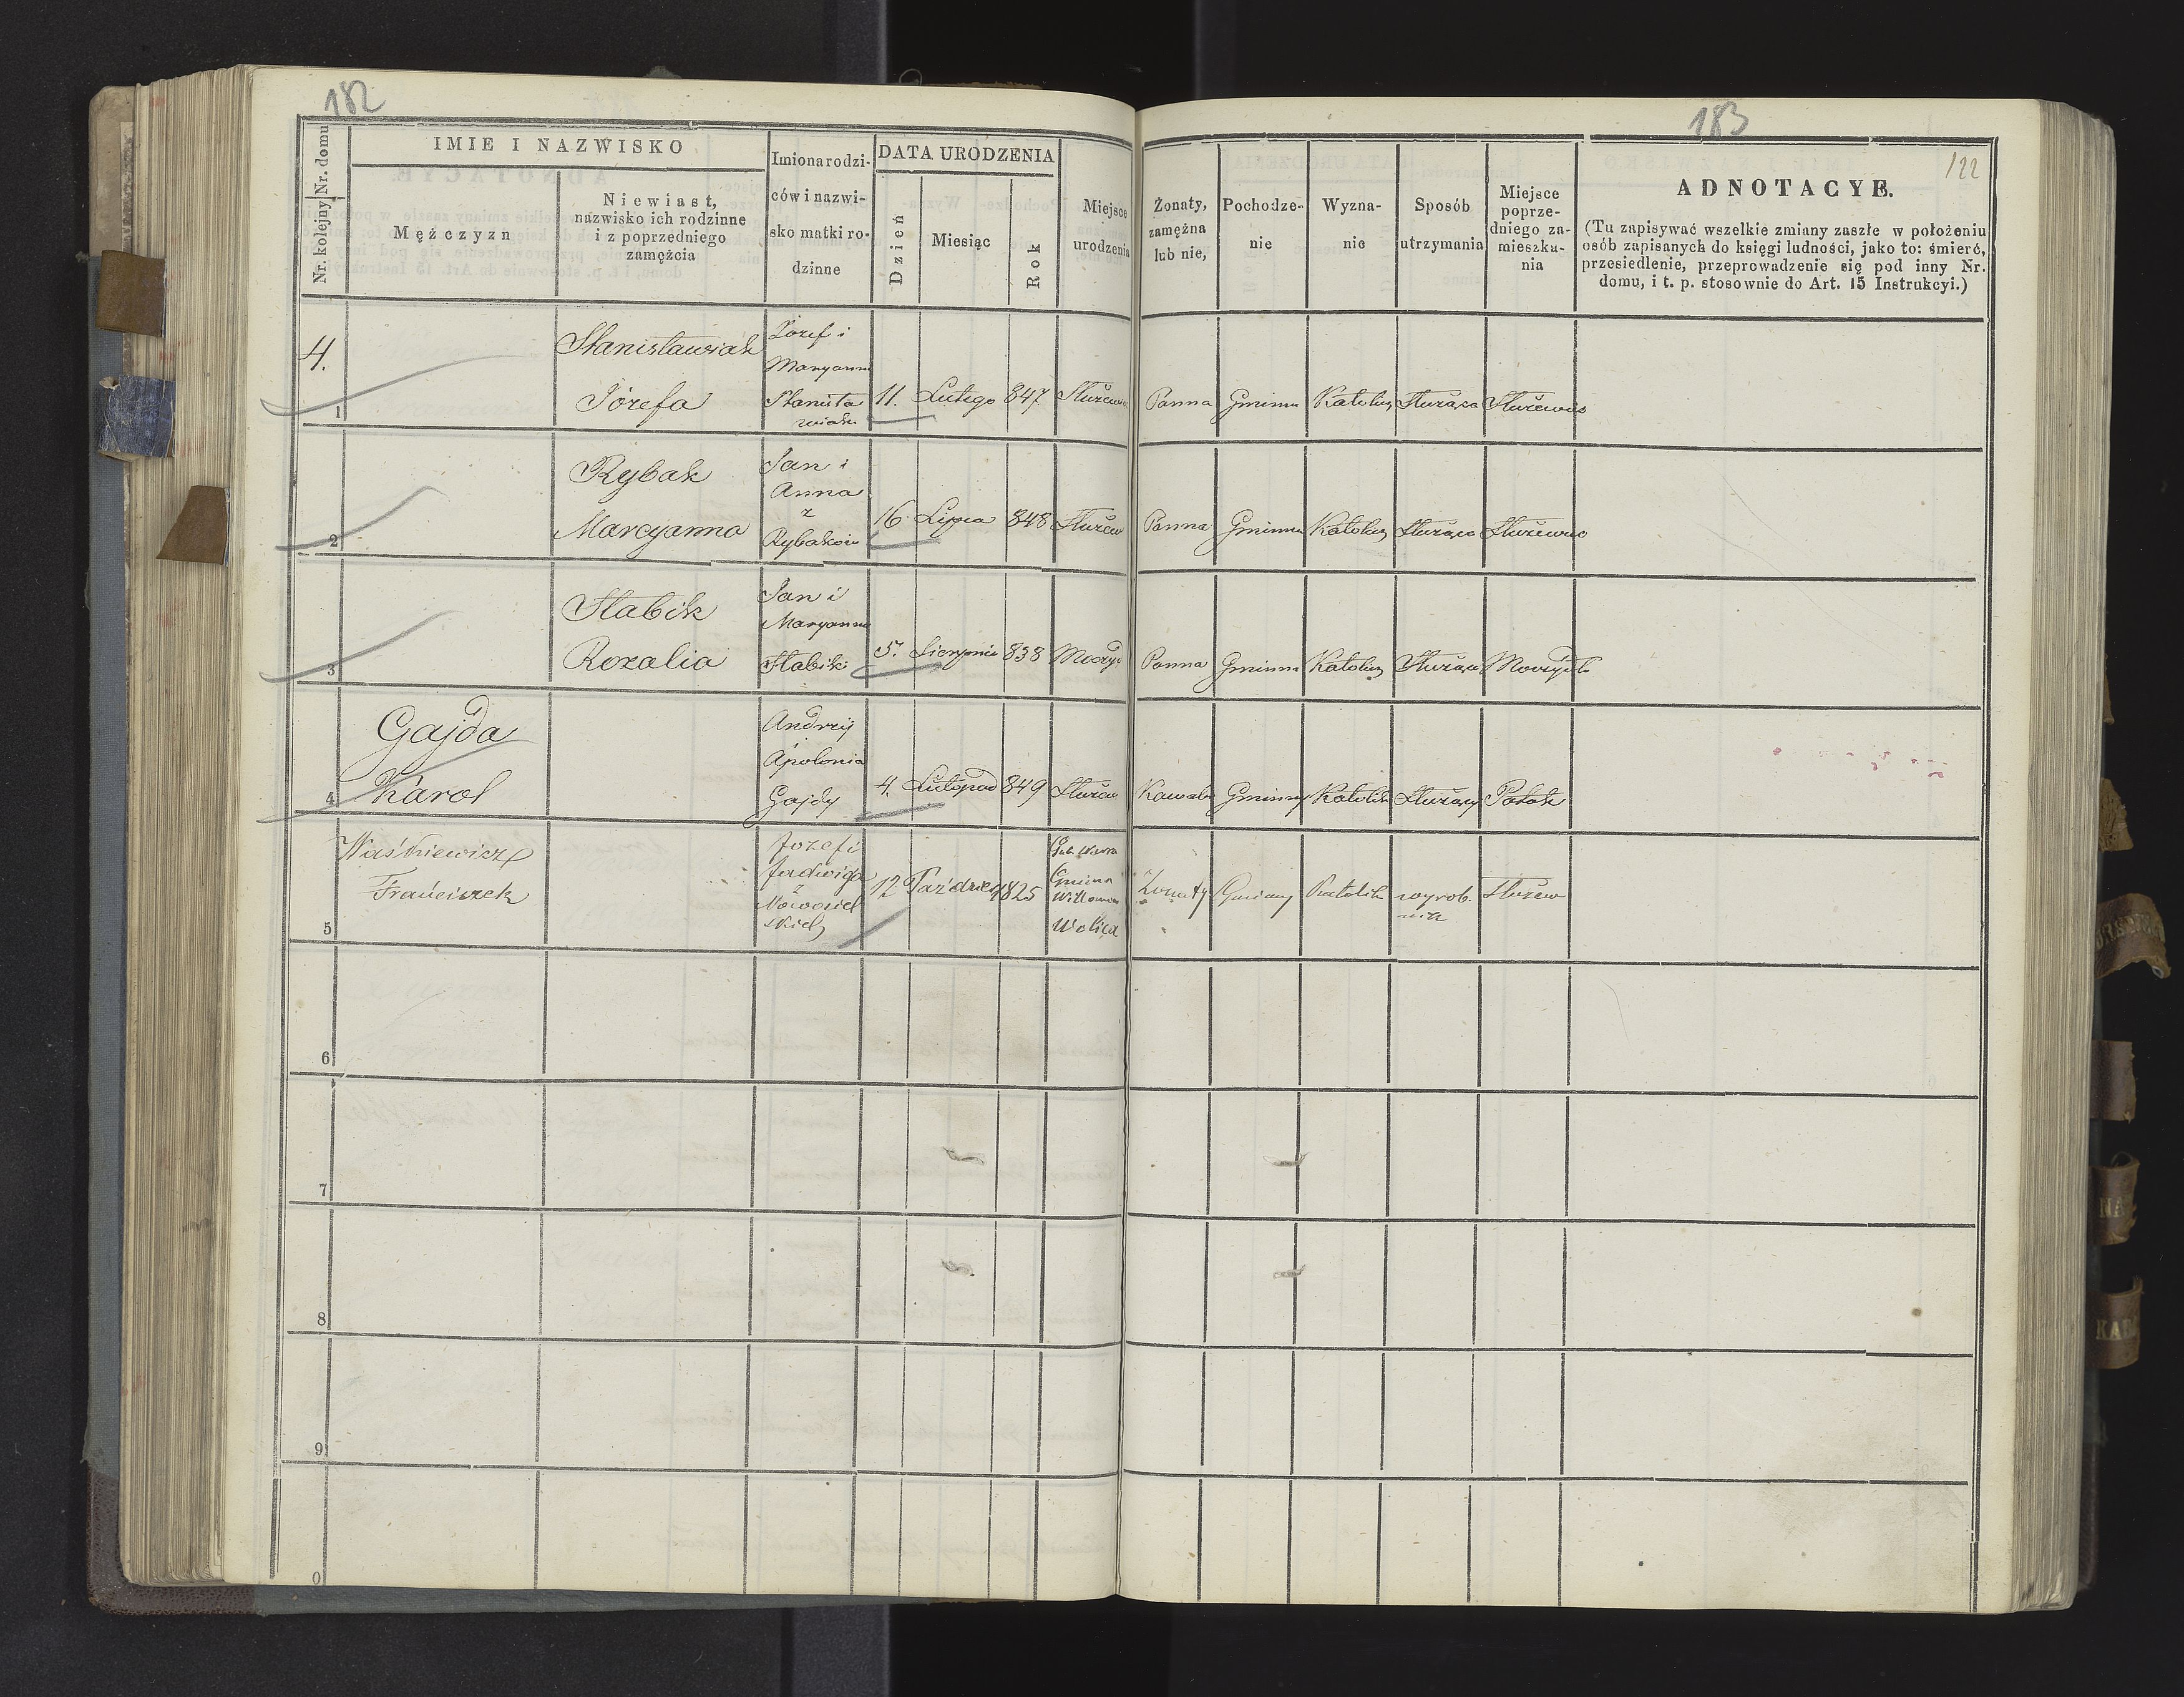 182
183
122
Nr. kolejny Nr. domu
IMIE I NAZWISKO
Mężczyzn
Niewiast,
nazwisko ich rodzinne
i z poprzedniego
zamężcia
Imiona rodzi-
ców i nazwi-
sko matki ro-
dzinne
DATA URODZENIA
Dzień
Miesiąc
Rok
Miejsce
urodzenia
Żonaty,
zamężna
lub nie,
Pochodze-
nie
Wyzna-
nie
Sposób
utrzymania
Miejsce
poprze-
dniego za-
mieszka-
nia
ADNOTACYE.
(Tu zapisywać wszelkie zmiany zaszłe w położeniu
osób zapisanych do księgi ludności, jako to: śmierć,
przesiedlenie, przeprowadzenie się pod inny Nr.
domu, i t. p. stosownie do Art. 15 Instrukcyi.)
4.
1
Stanisławiak
Józefa
Józef i
Maryanna
11. Lutego 847
Panna Gminna Służąca Służewie
2
Rybak
Marcyanna
Jan i
Anna
z
Rybaków
16 Lipca 848 Służew
Panna Gminna Służąca
3
Słabik
Rozalia
Jan i
Maryanna
Słabiki
5. Sierpnia 838
Panna Gminna Służąca
4
Gajda
Karol
Andrzej
Apolonia
Gajdy
4. Listopad 849 Służew
Kawaler Gminny Katolik Służący Potok
5
Waśkiewicz
Franciszek
Józef i
Jadwiga
z
Nowosiel
skich
12 Paździer 1825
Gub Warsza
Gmina
Willanów
Wolica
Żonaty Gminny Katolik wyrob.
nik
Służew
6
7
8
9
0